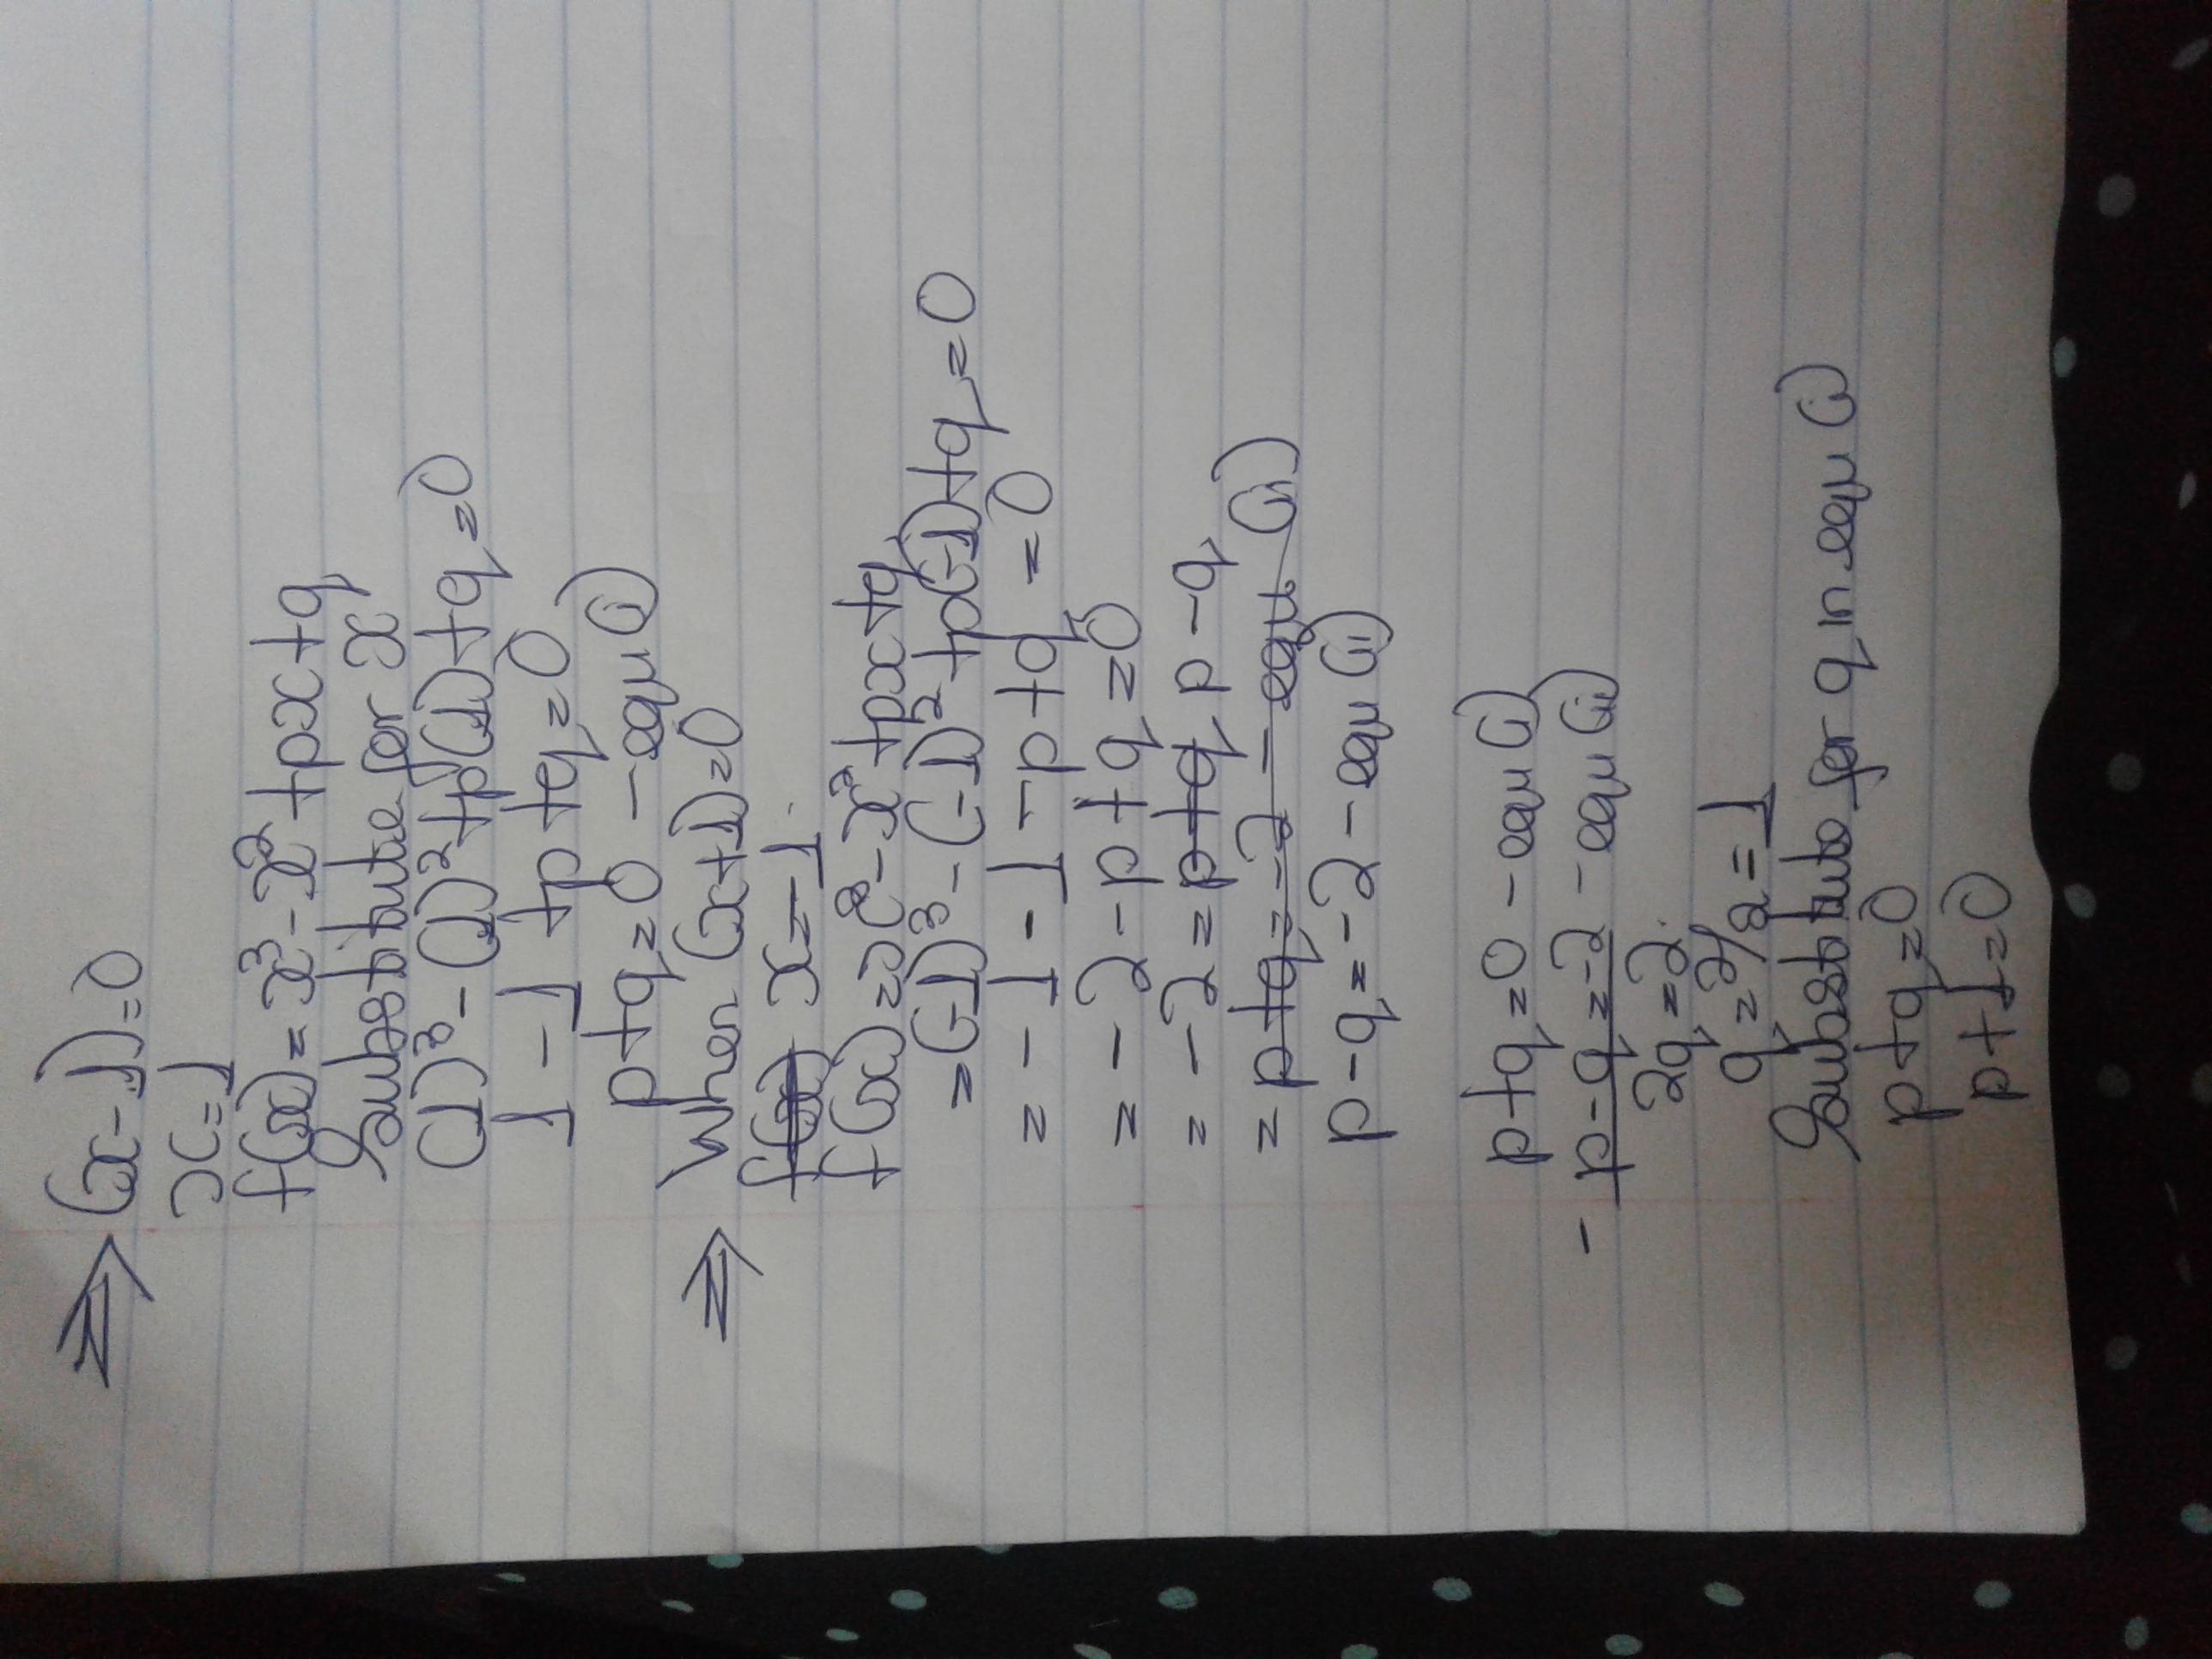 ⇒ (x-1)=0
x=1
f(x)=x³-x²+px+q
Substitute for x
(1)³-(1)²+p(1)+q=0
1-1+p+q=0
p+q=0 - equ (i)
⇒ When (x+1)=0
f(x) x=-1.
f(x)=x³-x²+px+q
=(-1)³-(-1)²+p(-1)+q=0
= -1-1-p+q=0
= -2-p+q=0
= -2=p+q p-q
= p+q=-2-equ (ii)
p-q=-2-equ (ii)
p+q=0-equ (i)
- p-q=-2-equ (ii)
2q=2.
q=2/2=1
Substitute for q in equ (i)
p+q=0
p+1=0